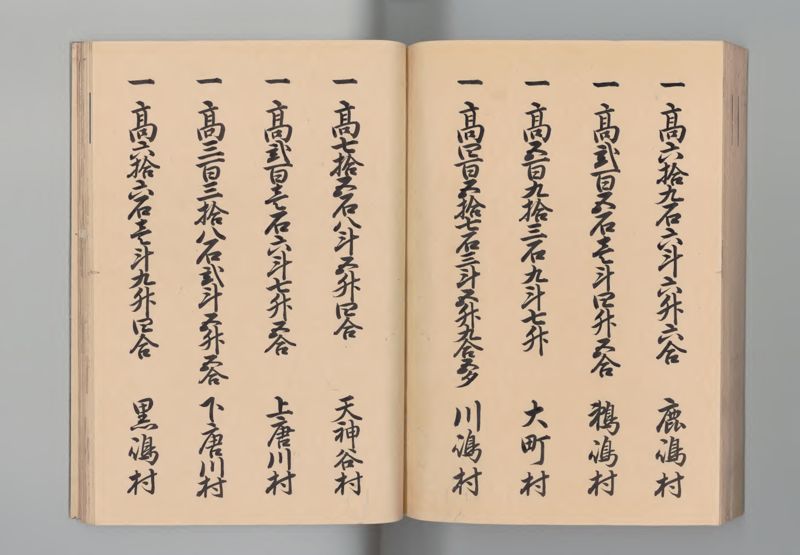 一 高六拾九石六斗六升六合 鹿嶋村
一 高弐百五石壱斗四升五合 鵜嶋村
一 高五百九拾三石九斗七升 大町村
一 高四百五拾七石三斗五升九合五夕 川嶋村
一 高七拾五石八斗五升四合 天神谷村
一 高弐百壱石六斗七升五合 上唐川村
一 高三百三拾八石弐斗五升五合 下唐川村
一 高六拾六石壱斗九升四合 黒嶋村